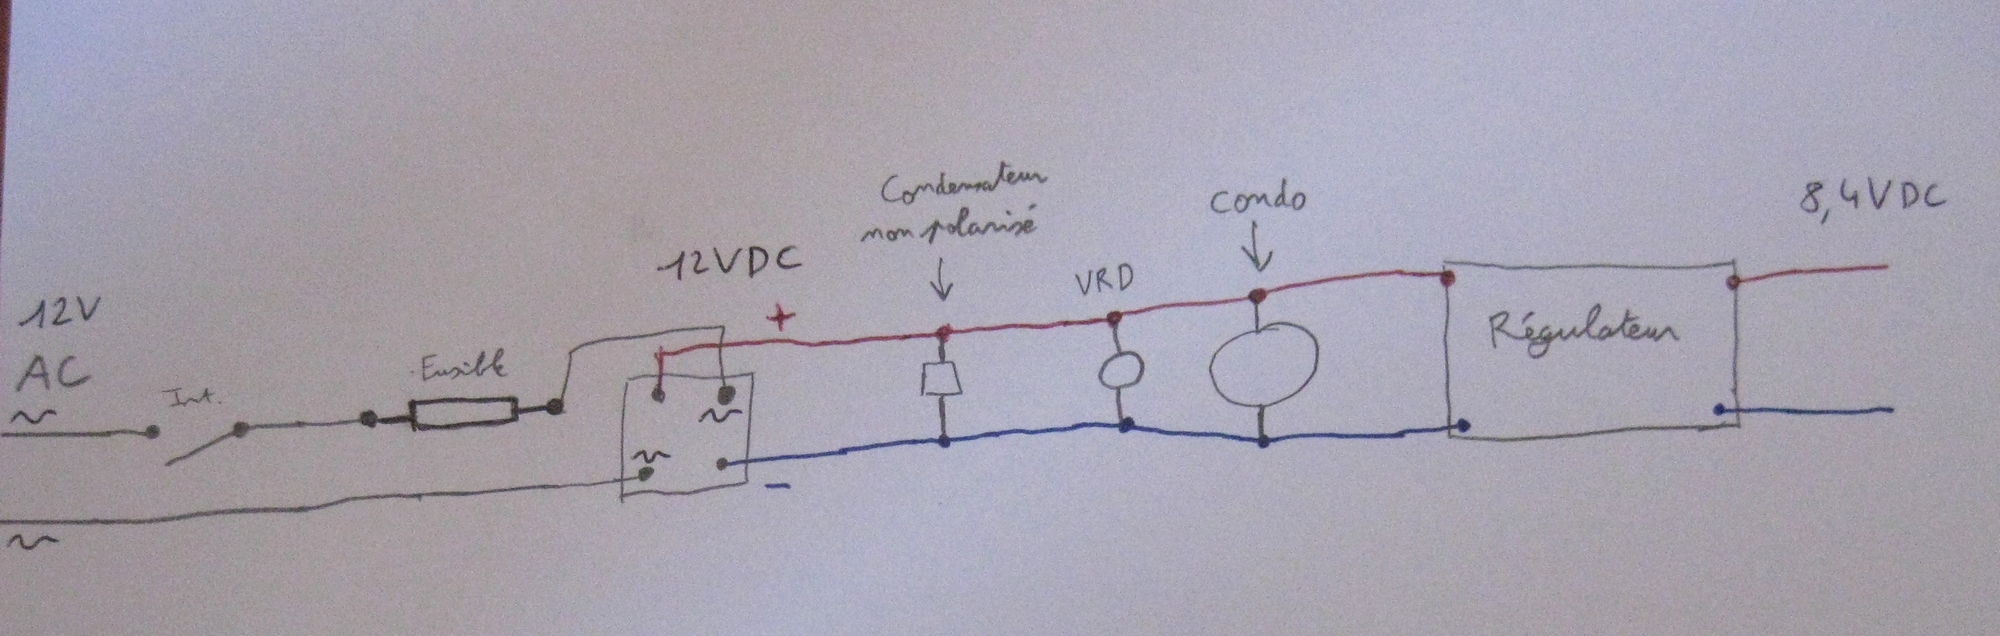 12V
AC
~
~
Int.
Fusible
~
~
12VDC
+
-
Condensateur
non polarisé
VRD
Condo
Régulateur
8,4VDC